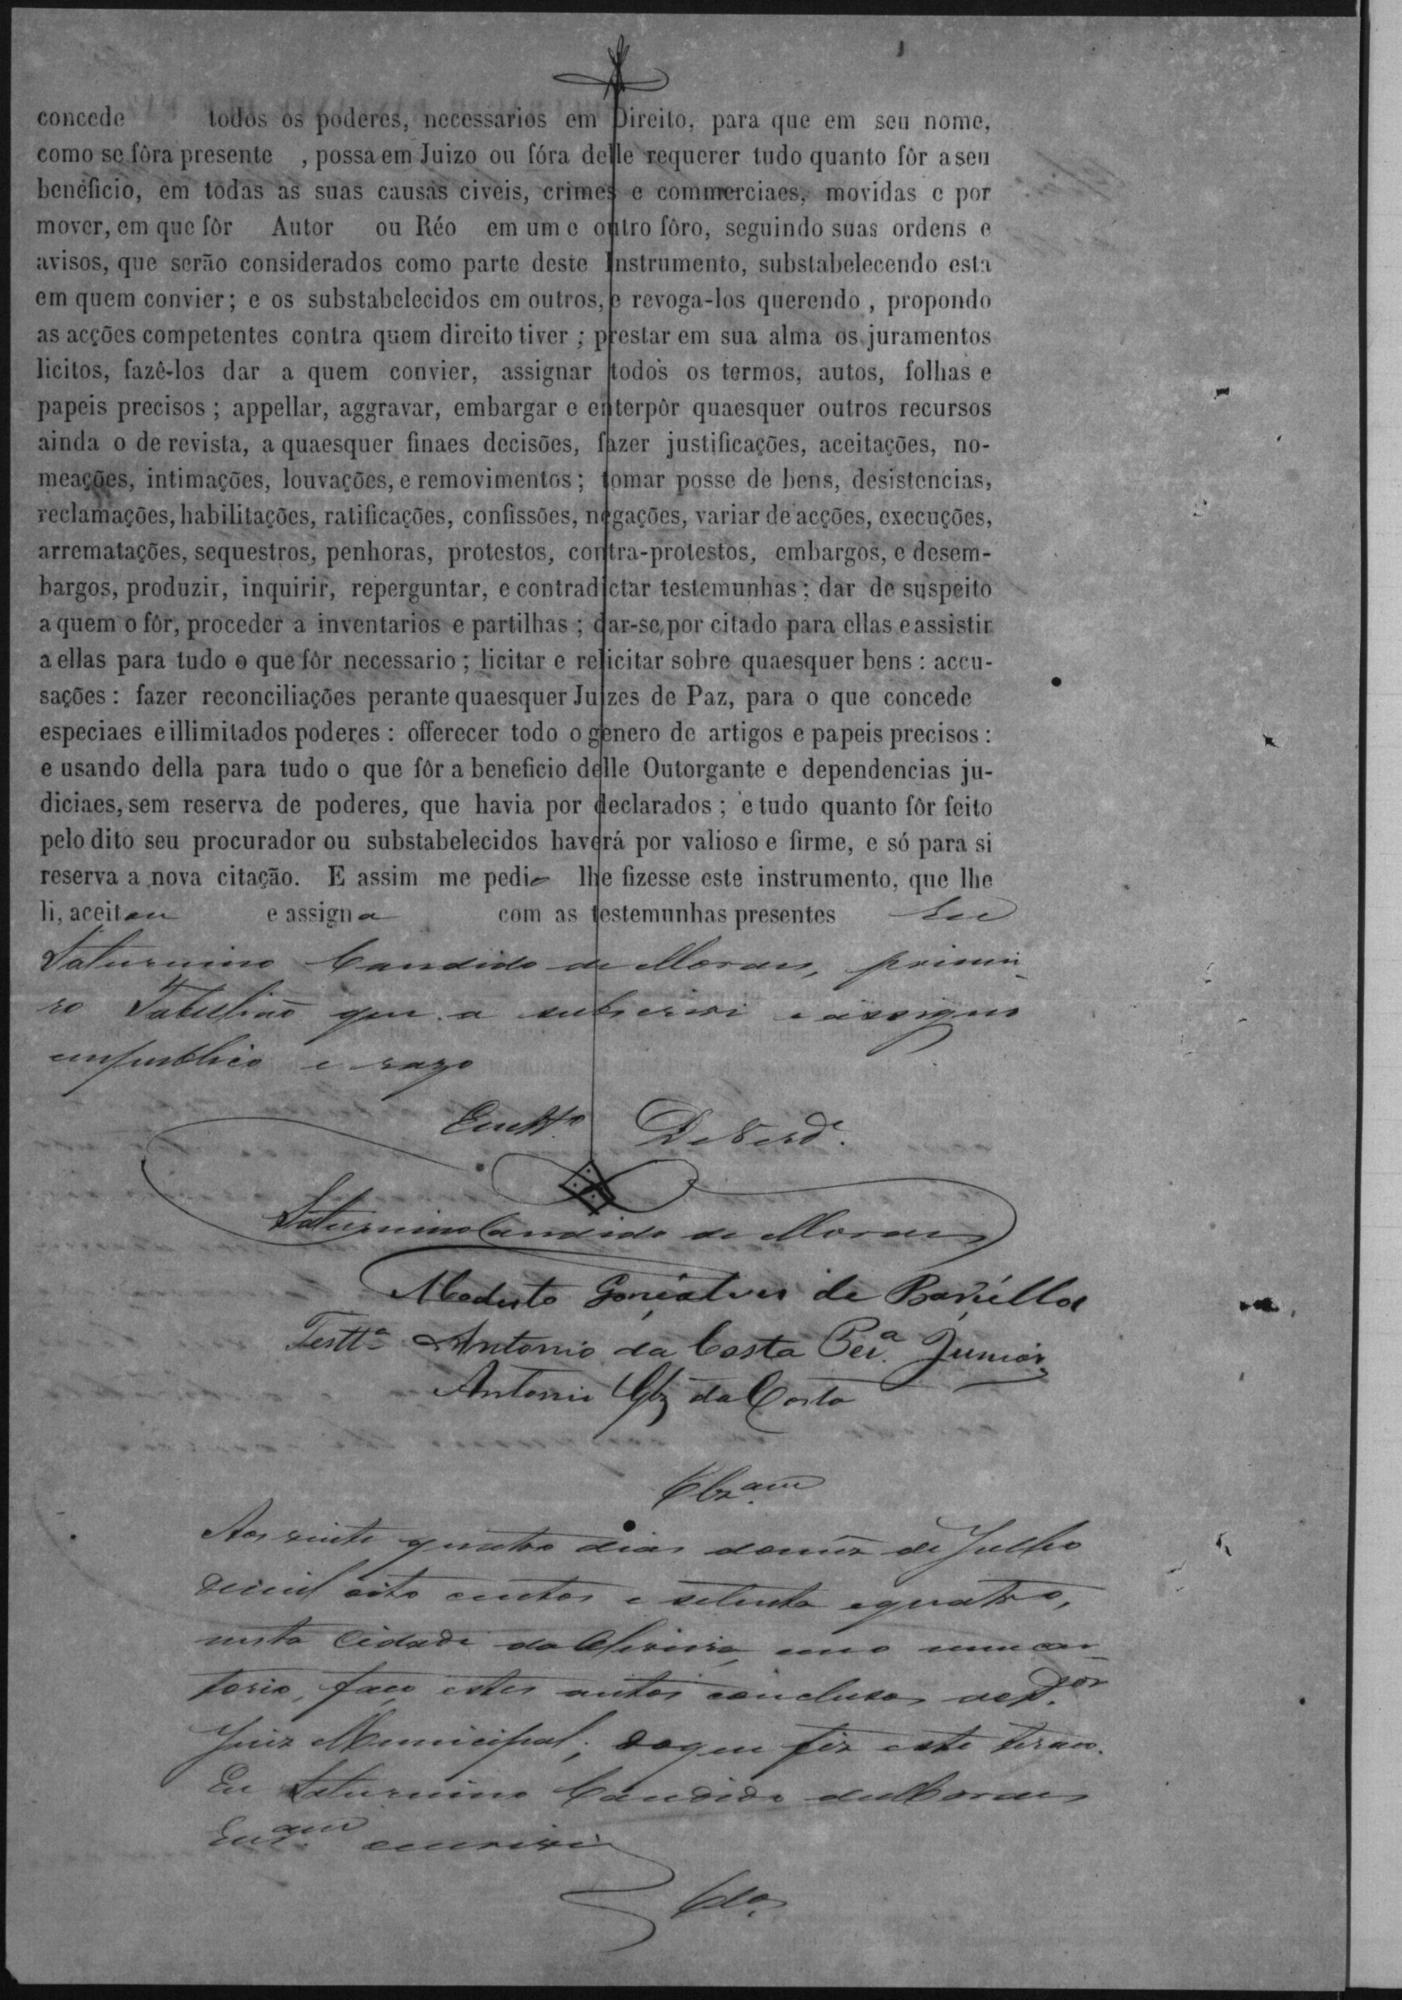 concede todos os poderes, necessarios em Direito, para que em seu nome,
como se fôra presente , possa em Juizo ou fóra delle requerer tudo quanto fôr a seu
beneficio, em todas as suas causas civeis, crimes e commerciaes, movidas e por
mover, em que fôr Autor ou Réo em um e outro fôro, seguindo suas ordens e
avisos, que serão considerados como parte deste Instrumento, substabelecendo esta
em quem convier; e os substabelecidos em outros, e revoga-los querendo , propondo
as acções competentes contra quem direito tiver ; prestar em sua alma os juramentos
licitos, fazê-los dar a quem convier, assignar todos os termos, autos, folhas e
papeis precisos ; appellar, aggravar, embargar e enterpôr quaesquer outros recursos
ainda o de revista, a quaesquer finaes decisões, fazer justificações, aceitações, no-
meações, intimações, louvações, e removimentos ; tomar posse de bens, desistencias,
reclamações, habilitações, ratificações, confissões, negações, variar de acções, execuções,
arrematações, sequestros, penhoras, protestos, contra-protestos, embargos, e desem-
bargos, produzir, inquirir, reperguntar, e contradictar testemunhas ; dar de suspeito
a quem o fôr, proceder a inventarios e partilhas ; dar-se por citado para ellas e assistir
a ellas para tudo o que fôr necessario ; licitar e relicitar sobre quaesquer bens : accu-
sações : fazer reconciliações perante quaesquer Juizes de Paz, para o que concede
especiaes e illimitados poderes : offerecer todo o genero de artigos e papeis precisos :
e usando della para tudo o que fôr a beneficio delle Outorgante e dependencias ju-
diciaes, sem reserva de poderes, que havia por declarados ; e tudo quanto fôr feito
pelo dito seu procurador ou substabelecidos haverá por valioso e firme, e só para si
reserva a nova citação. E assim me pedio lhe fizesse este instrumento, que lhe
li, aceitou e assigna com as testemunhas presentes Eu
Saturnino Candido de Moraes, primei-
ro Tabellião que a subscrevi e assigno
em publico e razo
Em tt.º De verd.e
Saturnino Candido de Moraes
Modesto Gonçalves de
Testt.a Antonio da Costa Per.a Junior
Antonio Glz da Costa
Clz.am
Aos vinte quatro dias do mez de Julho
de mil oito centos e setenta e quatro,
nesta Cidade da Oliveira, em o meu car-
torio, faço estes autos conclusos ao D.or
Juiz Municipal; do que fiz este termo.
Eu Saturnino Candido de Moraes
Escr.am escrevi
Clos.